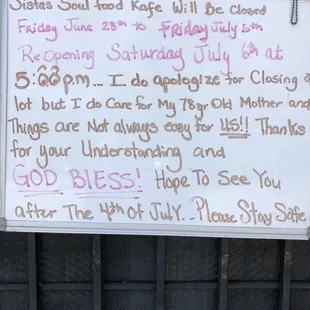 Sistas Soul food Kafe Will Be Closed
Friday June 28th to Friday July 5th
ReOpening Saturday July 6th at
5:00 p.m... I do apologize for Closing a
lot but I do Care for My 78yr Old Mother and
Things are Not always easy for US!! Thanks
for your Understanding and
GOD BLESS! Hope To See You
after The 4th of July.. Please Stay Safe